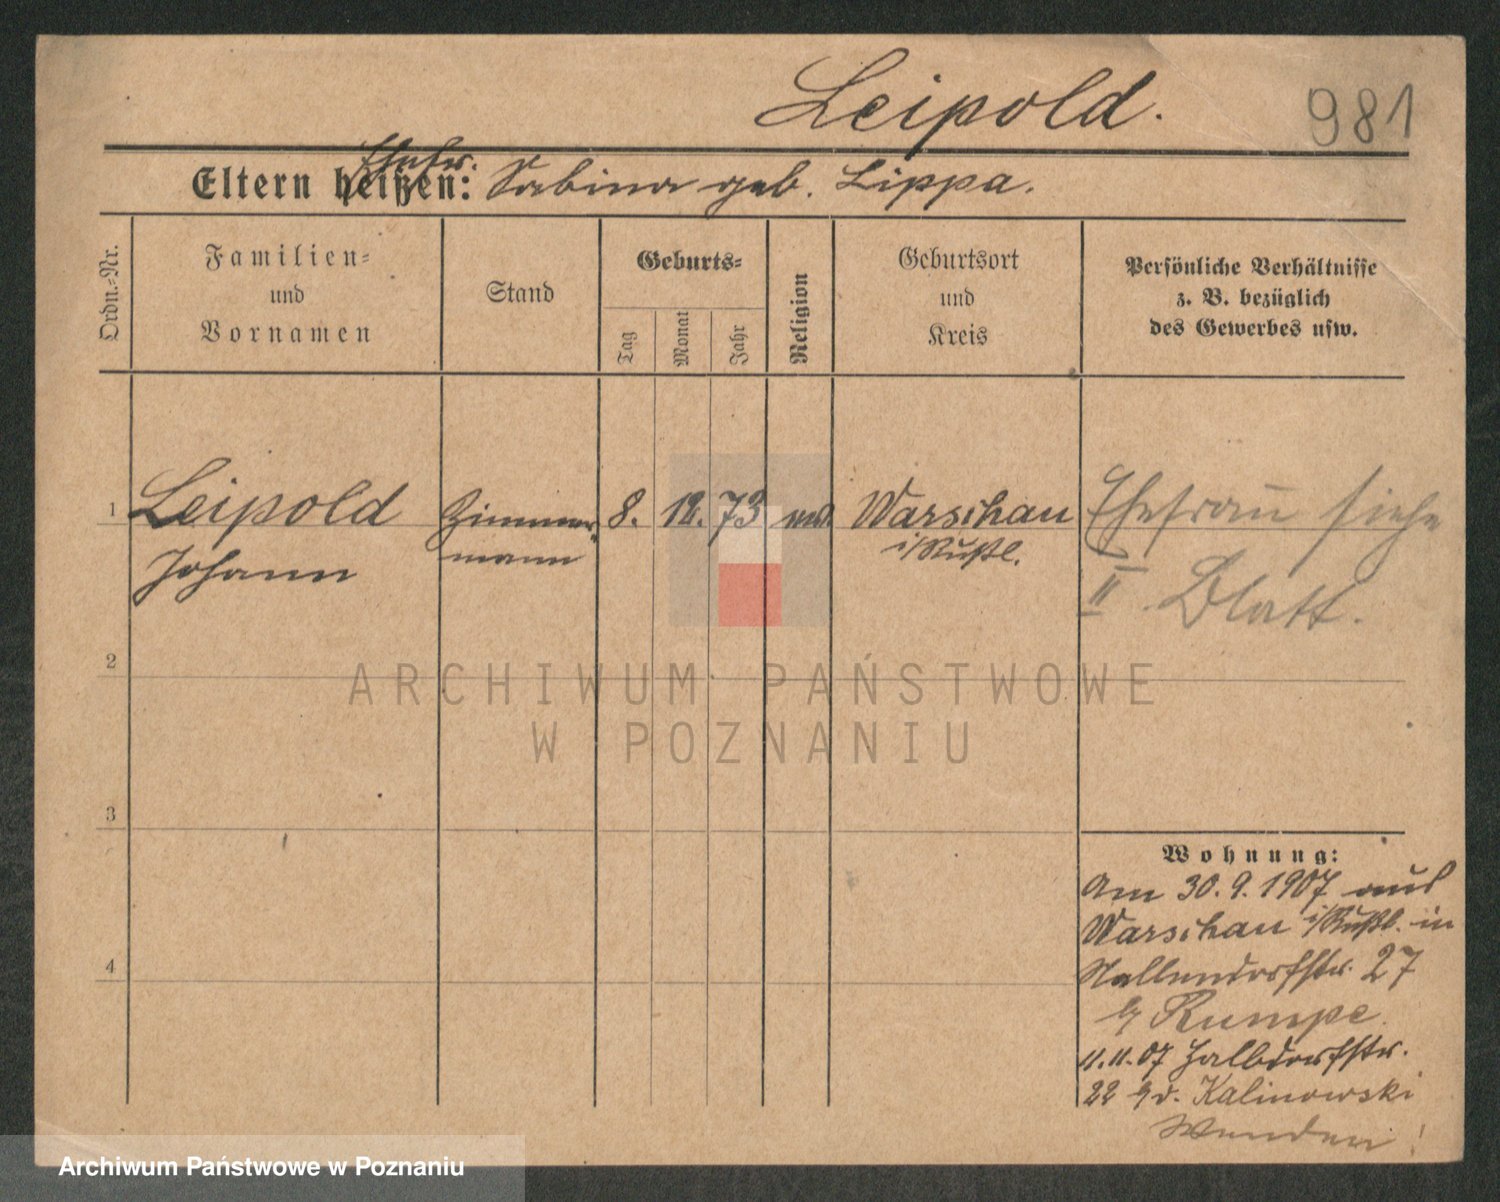 Leipold.
981
Ehefr.
Eltern heißen: Sabina geb. Lippa.
Ordn.-Nr.
Familien-
und
Vornamen
Stand
Geburts-
Tag
Monat
Jahr
Religion
Geburtsort
und
Kreis
Persönliche Verhältnisse
z. B. bezüglich
des Gewerbes usw.
1
Leipold
Johann
Zimmer-
mann
8. 12. 73
Warschau
i/Rußl.
Ehefrau siehe
II Blatt.
2
ARCHIWUM PAŃSTWOWE
W POZNANIU
3
4
Wohnung:
Am 30.9.1907 aus
Warschau i/Rußl. in
Nollendorfstr. 27
b/ Rumpe.
11.11.07 Halbdorfstr.
22 Kalinowski
Wenden!
Archiwum Państwowe w Poznaniu